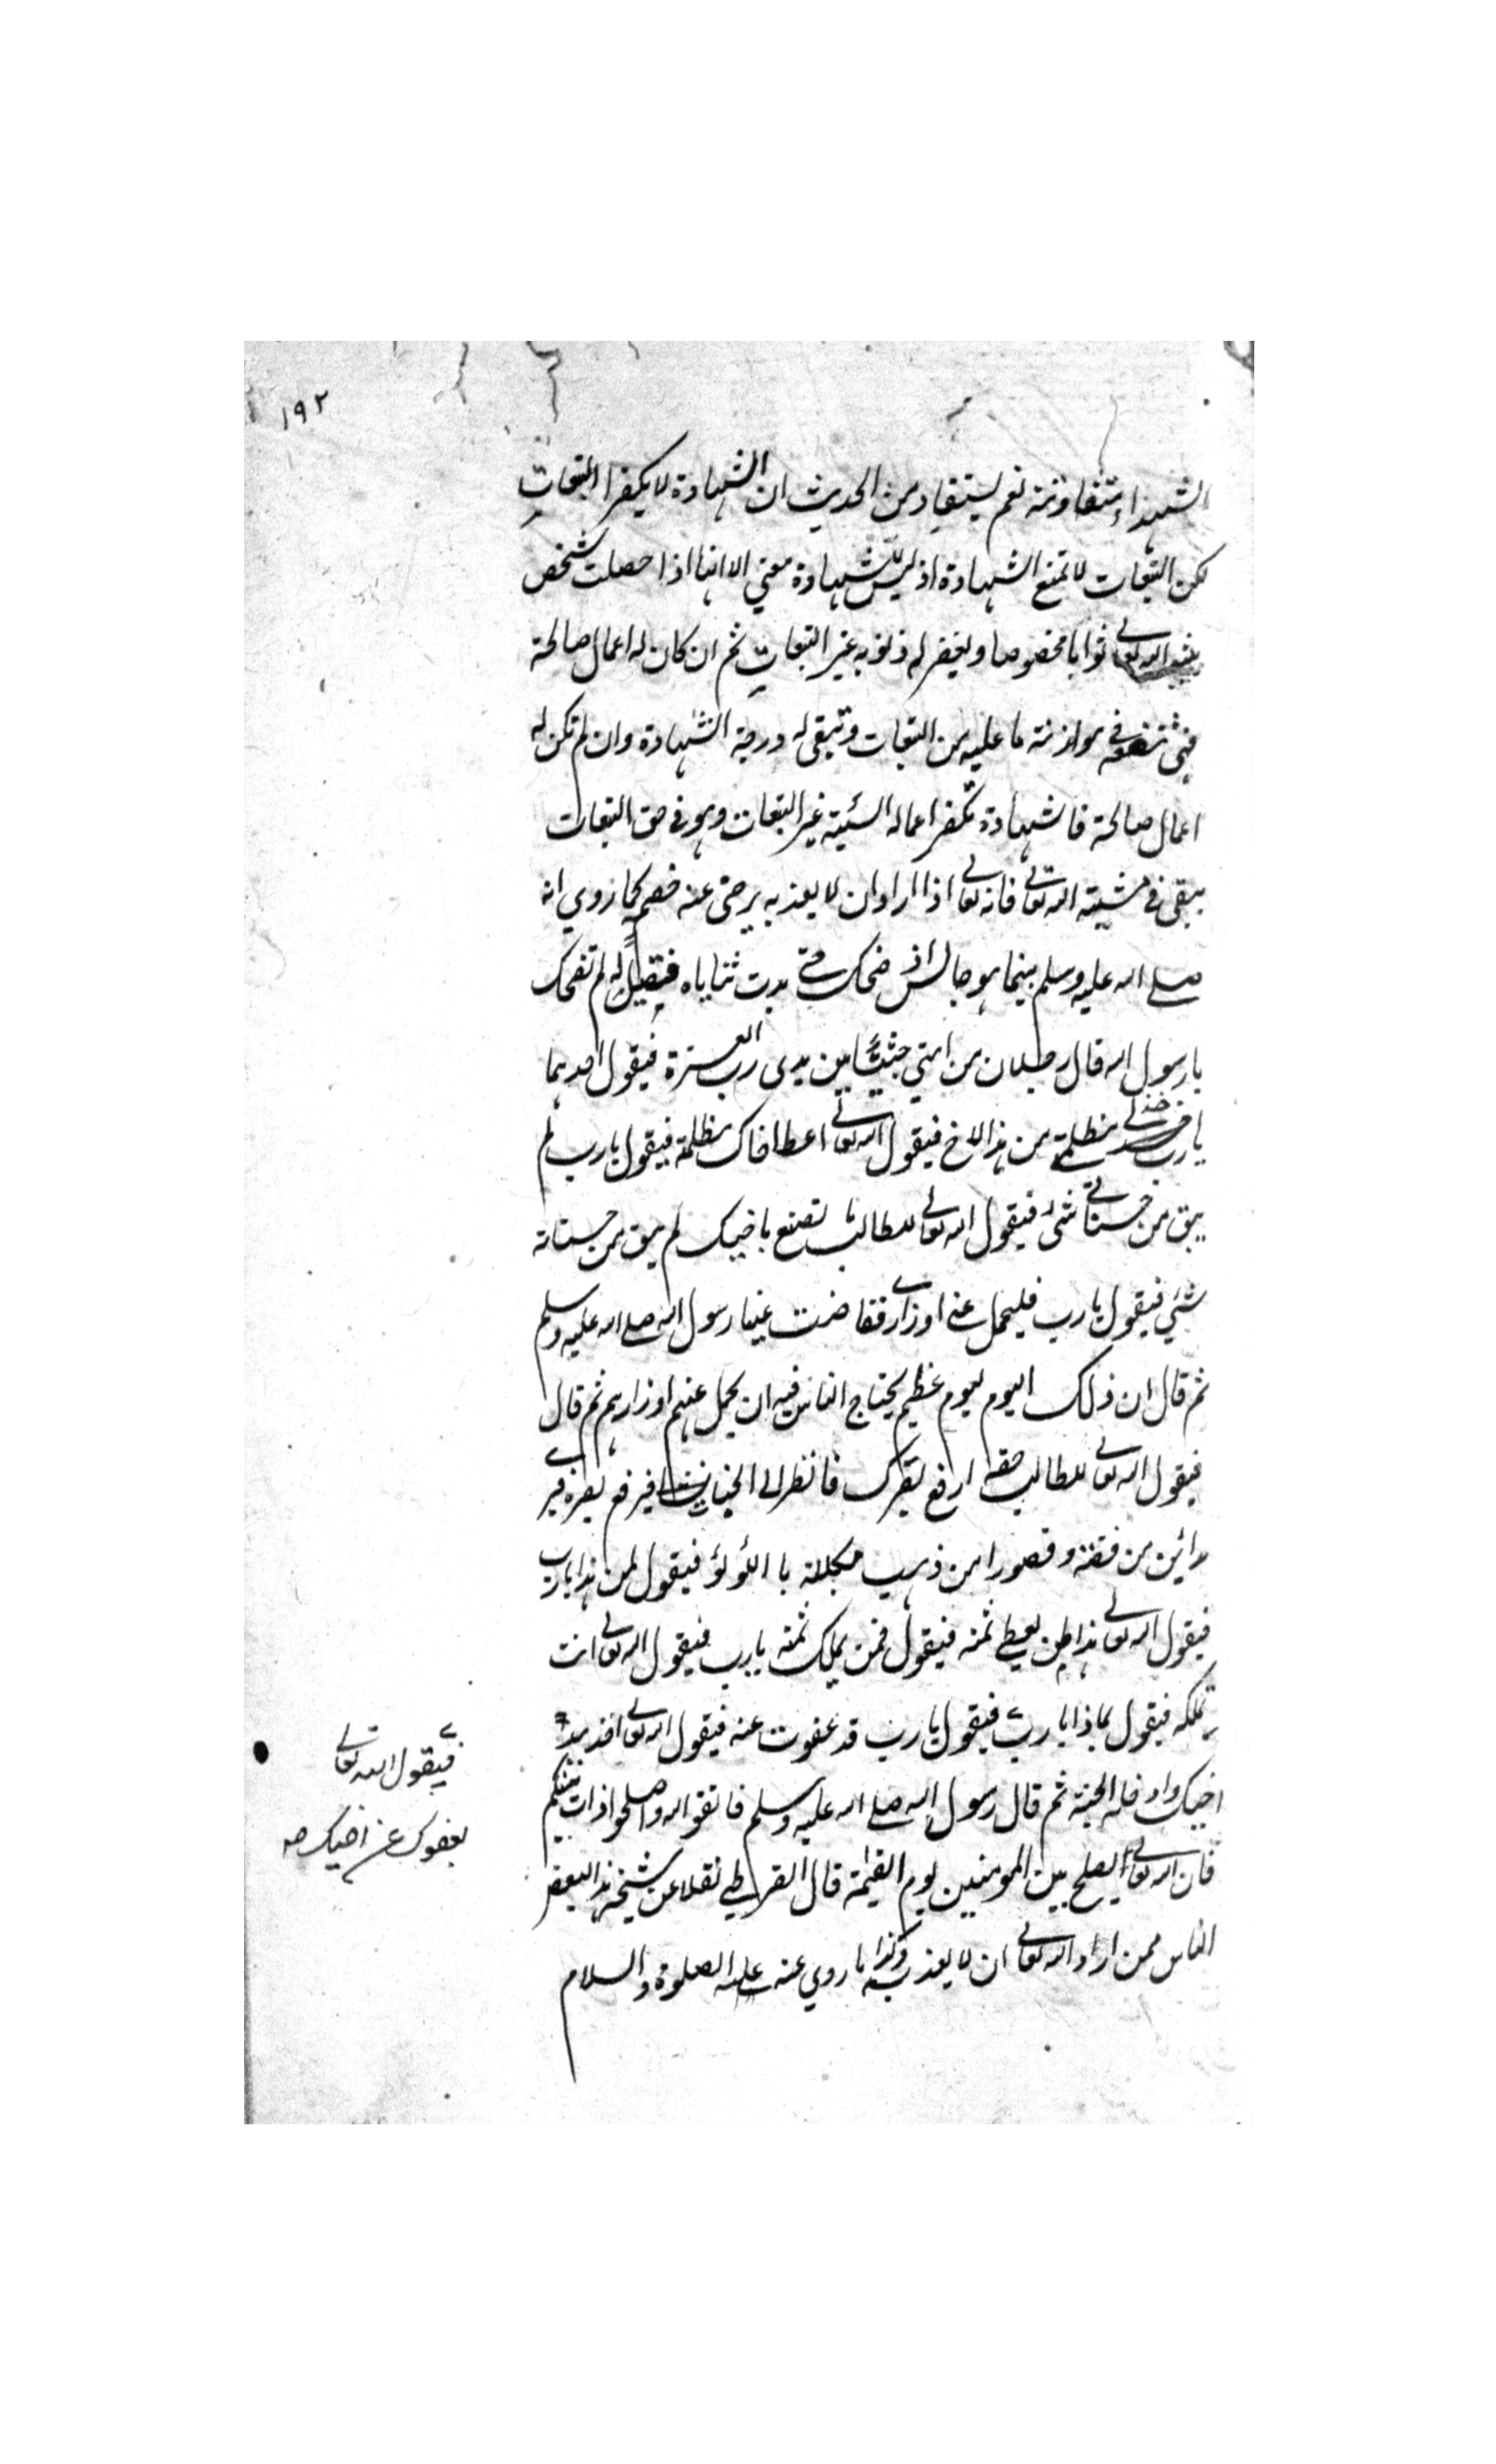 ١٩٢
الشهداء متفاوتة نعم يستفاد من الحديث ان الشهادة لا يكفر التبعات
لكن التبعات لا تمنع الشهادة اذ ليس للشهادة معنى الا انها اذا حصلت شخص
يثيبه الله تعالى ثوابا مخصوصا ويغفر له ذنوبه غير التبعات ثم ان كان له اعمال صالحة
فهي تنفعه في موازنة ما عليه من التبعات وتبقى له درجة الشهادة وان لم تكن له
اعمال صالحة فالشهادة تكفر اعماله السيئة غير التبعات وهو في حق التبعات
يبقى في مشية الله تعالى فانه تعالى اذا اراد ان لا يعذبه يرضى عنه خصمه كما روي انه
صلى الله عليه وسلم بينما هو جالس اذ ضحك حتى بدت ثناياه فقيل له لم تضحك
يا رسول الله قال رجلان من امتي جثيا بين يدي رب العزة فيقول احدهما
يا رب خذ لي مظلمتي من هذا الاخ فيقول الله تعالى اعط اخاك مظلمته فيقول يا رب لم
يبق من حسناتي شئ فيقول الله تعالى للطالب ما تصنع باخيك لم يبق من حسناته
شئ فيقول يا رب فليحمل عني اوزاري ففاضت عينا رسول الله صلى الله عليه وسلم
ثم قال ان ذلك اليوم ليوم عظيم يحتاج الناس فيه ان يحمل عنهم اوزارهم ثم قال
فيقول الله تعالى للطالب حقه ارفع بصرك فانظر الى الجنان فيرفع بصره فيرى
مدائن من فضة وقصورا من ذهب مكللة باللؤلؤ فيقول لمن هذا يا رب
فيقول الله تعالى هذا لمن يعطي ثمنه فيقول فمن يملك ثمنه يا رب فيقول الله تعالى انت
تملكه فيقول بماذا يا رب فيقول يا رب قد عفوت عنه فيقول الله تعالى خذ بيد
اخيك وادخله الجنة ثم قال رسول الله صلى الله عليه وسلم فاتقوا الله واصلحوا ذات بينكم
فان الله تعالى يصلح بين المومنين يوم القيمة قال القرطبي نقلا عن شيخه هذا لبعض
الناس ممن اراد الله تعالى ان لا يعذبه وكذا ما روي عنه عليه الصلوة والسلام
فيقول الله تعالى
بعفوك عن اخيك صح